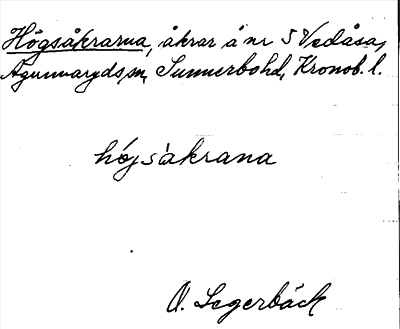 Högsåkrarna, åkrar å nr 5 Vedåsa,
Agunnaryds sn, Sunnerbo hd, Kronob. l.
højsåkrana
O. Segerbäck